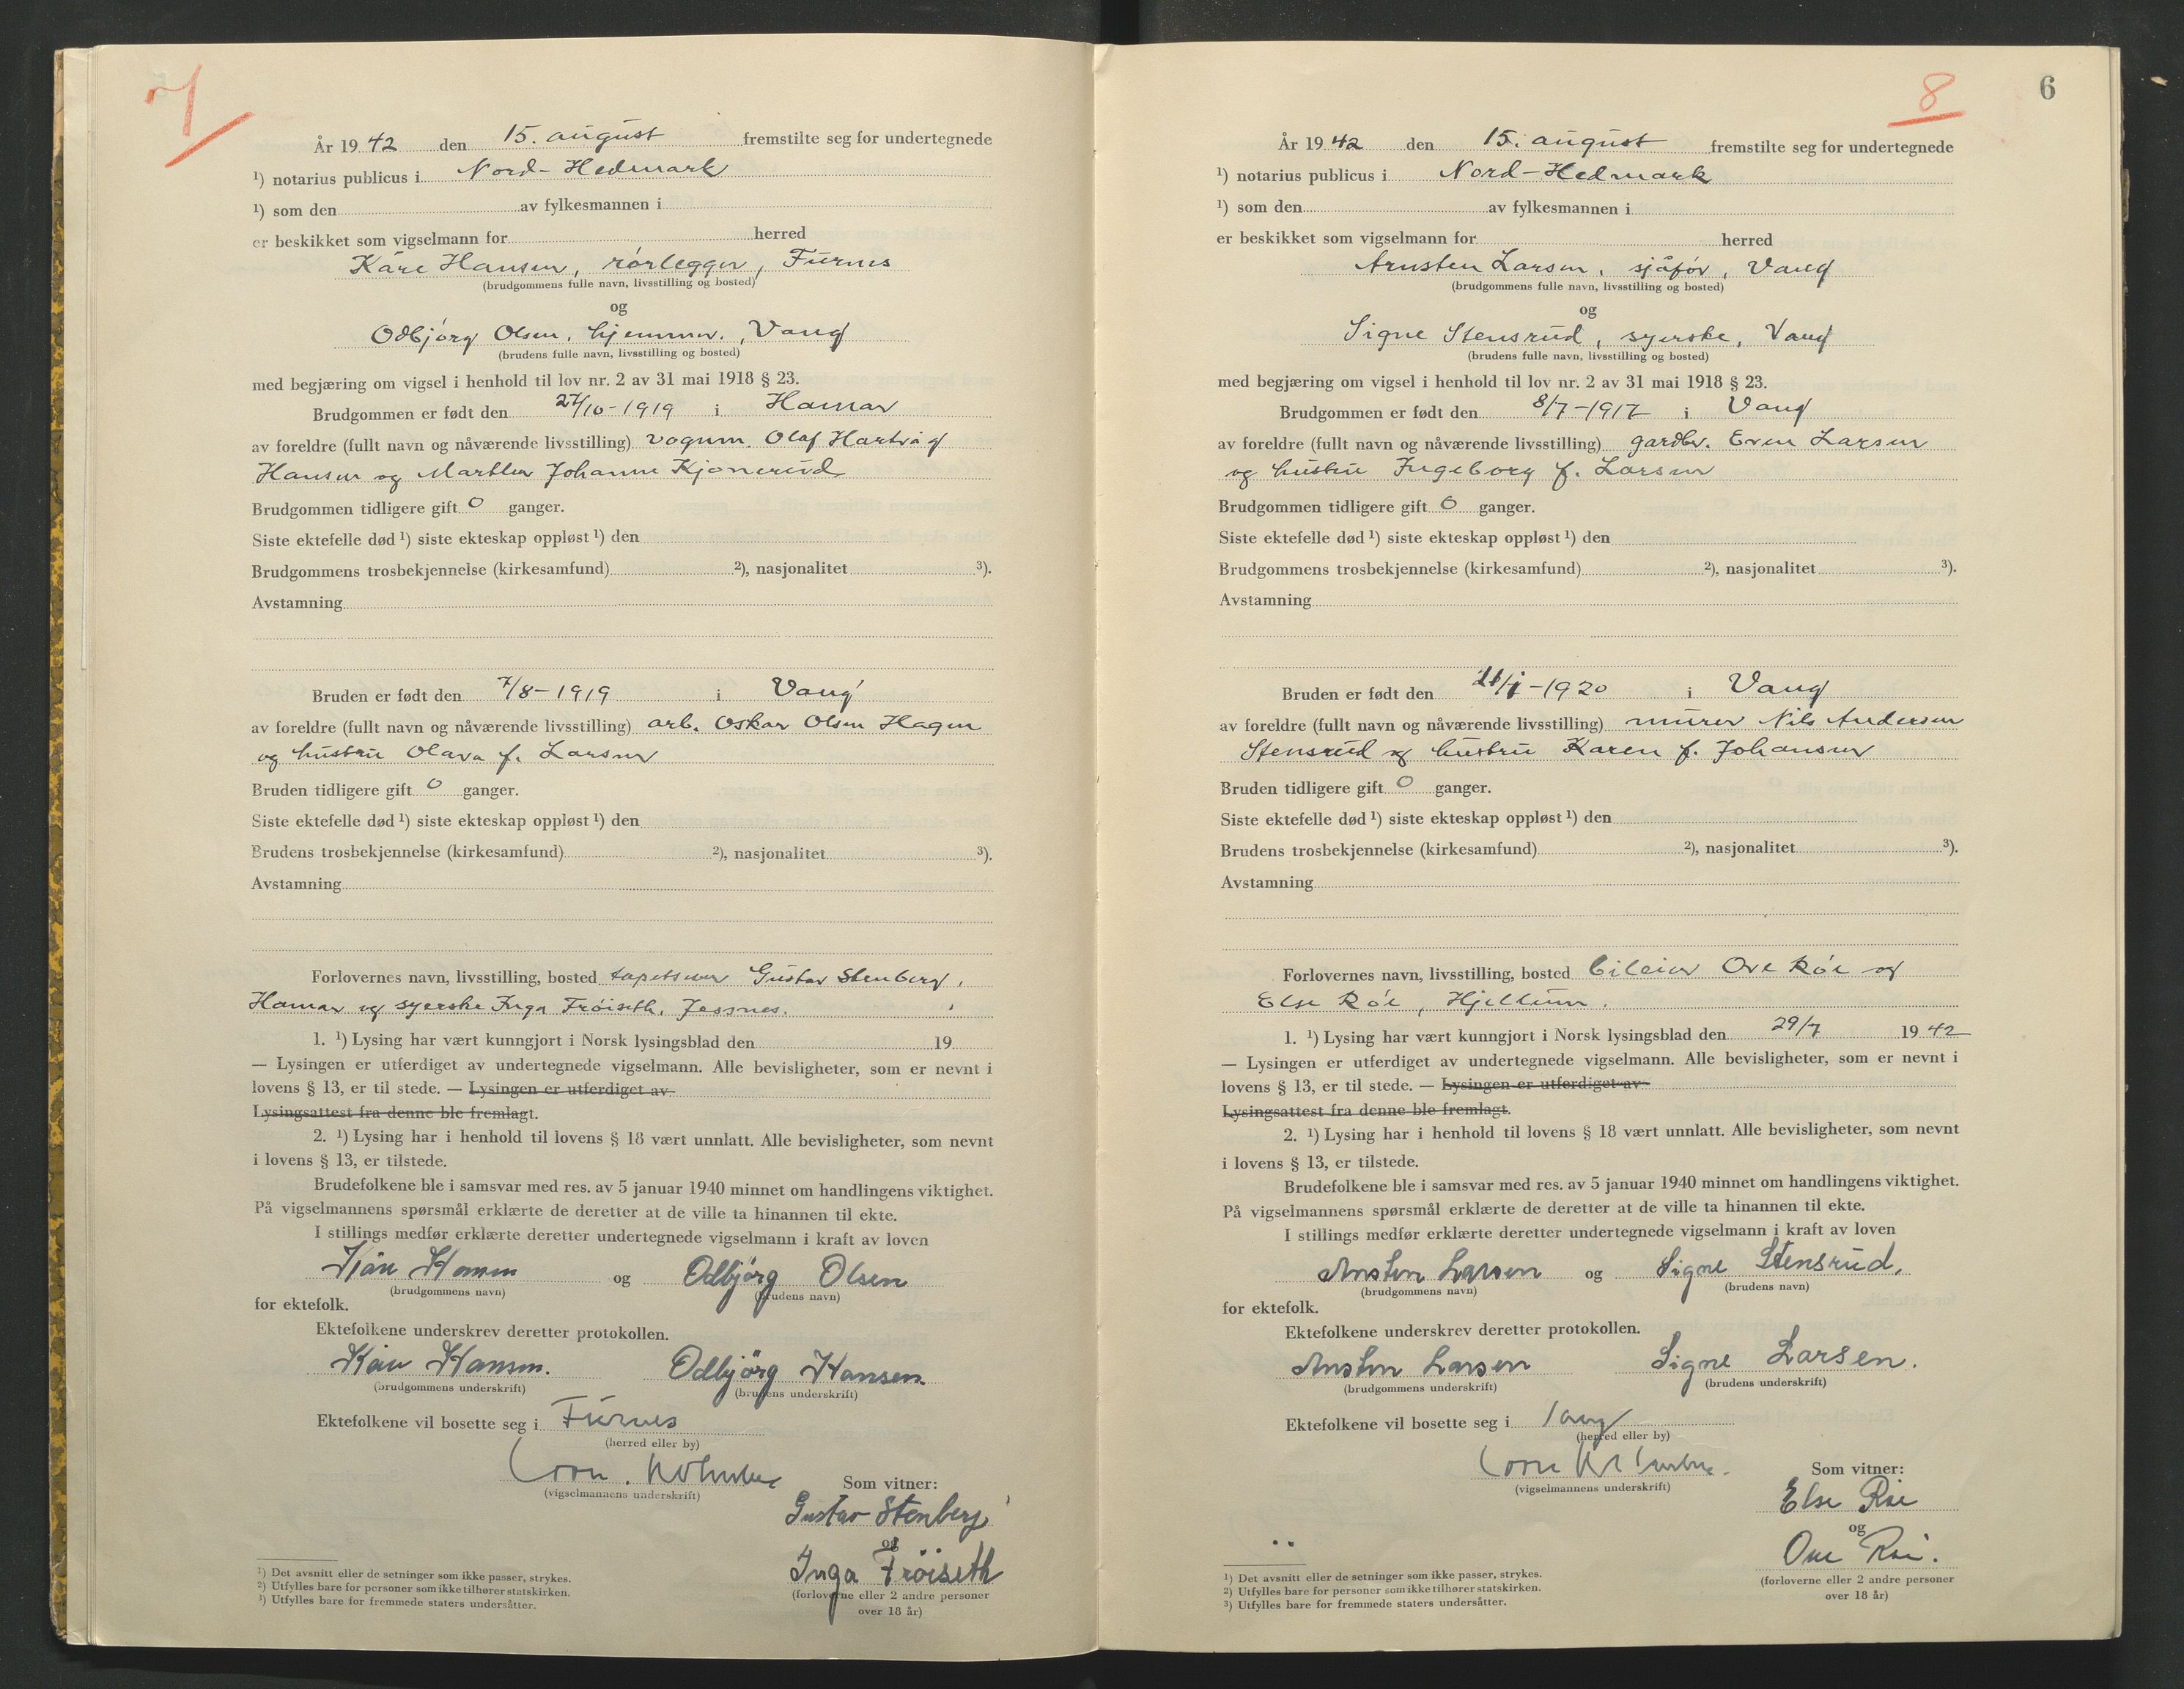 7
År 1942 den 15. august fremstilte seg for undertegnede
¹) notarius publicus i Nord-Hedmark
¹) som den av fylkesmannen i
er beskikket som vigselmann for herred
Kåre Hansen, rørlegger, Furnes
(brudgommens fulle navn, livsstilling og bosted)
og
Odbjørg Olsen, hjemmev., Vang
(brudens fulle navn, livsstilling og bosted)
med begjæring om vigsel i henhold til lov nr. 2 av 31 mai 1918 § 23.
Brudgommen er født den 27/10-1919 i Hamar
av foreldre (fullt navn og nåværende livsstilling) vognm. Olaf Hartvig
Hansen og Johanne
Brudgommen tidligere gift 0 ganger.
Siste ektefelle død ¹) siste ekteskap oppløst ¹) den
Brudgommens trosbekjennelse (kirkesamfund) ²), nasjonalitet ³).
Avstamning
Bruden er født den 7/8-1919 i Vang
av foreldre (fullt navn og nåværende livsstilling) arb. Oskar Olsen Hagen
og hustru Olava f. Larsen
Bruden tidligere gift 0 ganger.
Siste ektefelle død ¹) siste ekteskap oppløst ¹) den
Brudens trosbekjennelse (kirkesamfund) ²), nasjonalitet ³).
Avstamning
Forlovernes navn, livsstilling, bosted tapetserer Gustav Stenberg,
Hamar og syerske Inga Frøiseth, Jessnes.
1. ¹) Lysing har vært kunngjort i Norsk lysingsblad den 19
— Lysingen er utferdiget av undertegnede vigselmann. Alle bevisligheter, som er nevnt i
lovens § 13, er til stede. — Lysingen er utferdiget av
Lysingsattest fra denne ble fremlagt.
2. ¹) Lysing har i henhold til lovens § 18 vært unnlatt. Alle bevisligheter, som nevnt
i lovens § 13, er tilstede.
Brudefolkene ble i samsvar med res. av 5 januar 1940 minnet om handlingens viktighet.
På vigselmannens spørsmål erklærte de deretter at de ville ta hinannen til ekte.
I stillings medfør erklærte deretter undertegnede vigselmann i kraft av loven
Kåre Hansen og Odbjørg Olsen
(brudgommens navn) (brudens navn)
for ektefolk.
Ektefolkene underskrev deretter protokollen.
Kåre Hansen. Odbjörg Hansen.
(brudgommens underskrift) (brudens underskrift)
Ektefolkene vil bosette seg i Furnes
(herred eller by)
(vigselmannens underskrift)
Som vitner:
Gustav Stenberg
og
Inga Frøiseth
(forloverne eller 2 andre personer
over 18 år)
¹) Det avsnitt eller de setninger som ikke passer, strykes.
²) Utfylles bare for personer som ikke tilhører statskirken.
³) Utfylles bare for fremmede staters undersåtter.
8
6
År 1942 den 15. august fremstilte seg for undertegnede
¹) notarius publicus i Nord-Hedmark
¹) som den av fylkesmannen i
er beskikket som vigselmann for herred
Arnsten Larsen, sjåfør, Vang
(brudgommens fulle navn, livsstilling og bosted)
og
Signe Stensrud, syerske, Vang
(brudens fulle navn, livsstilling og bosted)
med begjæring om vigsel i henhold til lov nr. 2 av 31 mai 1918 § 23.
Brudgommen er født den 8/7-1917 i Vang
av foreldre (fullt navn og nåværende livsstilling) gardbr. Even Larsen
og hustru Ingeborg f. Larsen
Brudgommen tidligere gift 0 ganger.
Siste ektefelle død ¹) siste ekteskap oppløst ¹) den
Brudgommens trosbekjennelse (kirkesamfund) ²), nasjonalitet ³).
Avstamning
Bruden er født den -1920 i Vang
av foreldre (fullt navn og nåværende livsstilling) murer Nils Andersen
Stensrud og hustru Karen f. Johansen
Bruden tidligere gift 0 ganger.
Siste ektefelle død ¹) siste ekteskap oppløst ¹) den
Brudens trosbekjennelse (kirkesamfund) ²), nasjonalitet ³).
Avstamning
Forlovernes navn, livsstilling, bosted bileier Ove Røe og
Else Røe, Hjellum.
1. ¹) Lysing har vært kunngjort i Norsk lysingsblad den 29/7 1942
— Lysingen er utferdiget av undertegnede vigselmann. Alle bevisligheter, som er nevnt i
lovens § 13, er til stede. — Lysingen er utferdiget av
Lysingsattest fra denne ble fremlagt.
2. ¹) Lysing har i henhold til lovens § 18 vært unnlatt. Alle bevisligheter, som nevnt
i lovens § 13, er tilstede.
Brudefolkene ble i samsvar med res. av 5 januar 1940 minnet om handlingens viktighet.
På vigselmannens spørsmål erklærte de deretter at de ville ta hinannen til ekte.
I stillings medfør erklærte deretter undertegnede vigselmann i kraft av loven
Arnsten Larsen og Signe Stensrud.
(brudgommens navn) (brudens navn)
for ektefolk.
Ektefolkene underskrev deretter protokollen.
Arnsten Larsen Signe Larsen.
(brudgommens underskrift) (brudens underskrift)
Ektefolkene vil bosette seg i Vang
(herred eller by)
(vigselmannens underskrift)
Som vitner:
Else Røe
og
Ove Røe.
(forloverne eller 2 andre personer
over 18 år)
¹) Det avsnitt eller de setninger som ikke passer, strykes.
²) Utfylles bare for personer som ikke tilhører statskirken.
³) Utfylles bare for fremmede staters undersåtter.